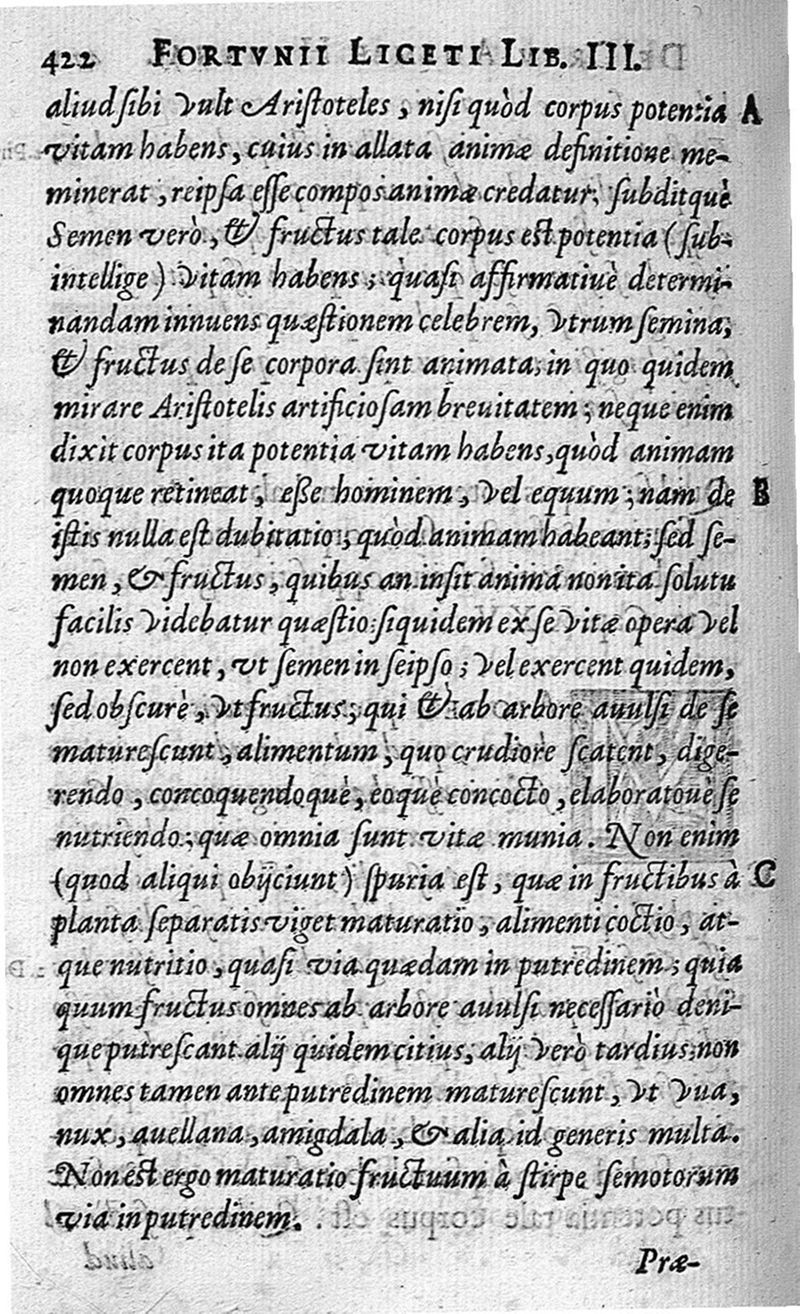 422 FORTVNII LICETI LIB. III.
aliud sibi vult Aristoteles, nisi quòd corpus potentia A
vitam habens, cuius in allata animæ definitione me-
minerat, reipsa esse compos animæ credatur; subditquè
Semen verò, & fructus tale corpus est potentia (sub-
intellige) vitam habens; quasi affirmatiuè determi-
nandam innuens quæstionem celebrem, vtrum semina,
& fructus de se corpora sint animata; in quo quidem
mirare Aristotelis artificiosam breuitatem; neque enim
dixit corpus ita potentia vitam habens, quòd animam
quoque retineat, esse hominem, vel equum; nam de B
istis nulla est dubitatio, quòd animam habeant; sed se-
men, & fructus, quibus an insit anima non ita solutu
facilis videbatur quæstio: siquidem ex se vitæ opera vel
non exercent, vt semen in seipso; vel exercent quidem,
sed obscurè, vt fructus; qui & ab arbore auulsi de se
maturescunt, alimentum, quo crudiore scatent, dige-
rendo, concoquendoquè, eoquè concocto, elaboratouè se
nutriendo; quæ omnia sunt vitæ munia. Non enim
(quod aliqui obijciunt) spuria est, quæ in fructibus à C
planta separatis viget maturatio, alimenti coctio, at-
que nutritio, quasi via quædam in putredinem; quia
quum fructus omnes ab arbore auulsi necessariò deni-
que putrescant alij quidem citius, alij verò tardius; non
omnes tamen ante putredinem maturescunt, vt vua,
nux, auellana, amigdala, & alia id generis multa.
Non est ergo maturatio fructuum à stirpe semotorum
via in putredinem.
Præ-